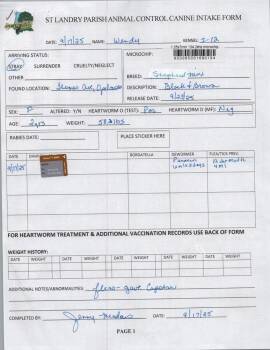 ST LANDRY PARISH ANIMAL CONTROL CANINE INTAKE FORM
DATE: 9/17/25 NAME: Wendy KENNEL: S-12
ARRIVING STATUS: MICROCHIP:
STRAY SURRENDER CRUELTY/NEGLECT
OTHER BREED: Shepherd mix
FOUND LOCATION: DESCRIPTION: Black & Brown
RELEASE DATE:
SEX: F ALTERED: Y/N HEARTWORM O (TEST): Pos HEARTWORM D (MF): Neg
AGE: 2yrs WEIGHT:
RABIES DATE: PLACE STICKER HERE
DATE BORDATELLA DEWORMER FLEA/TICK PREV.
9/17/25
FOR HEARTWORM TREATMENT & ADDITIONAL VACCINATION RECORDS USE BACK OF FORM
WEIGHT HISTORY:
DATE WEIGHT DATE WEIGHT DATE WEIGHT DATE WEIGHT
ADDITIONAL NOTES/ABNORMALITIES: fleas- gave Capstar
COMPLETED BY: DATE: 9/17/25
PAGE 1